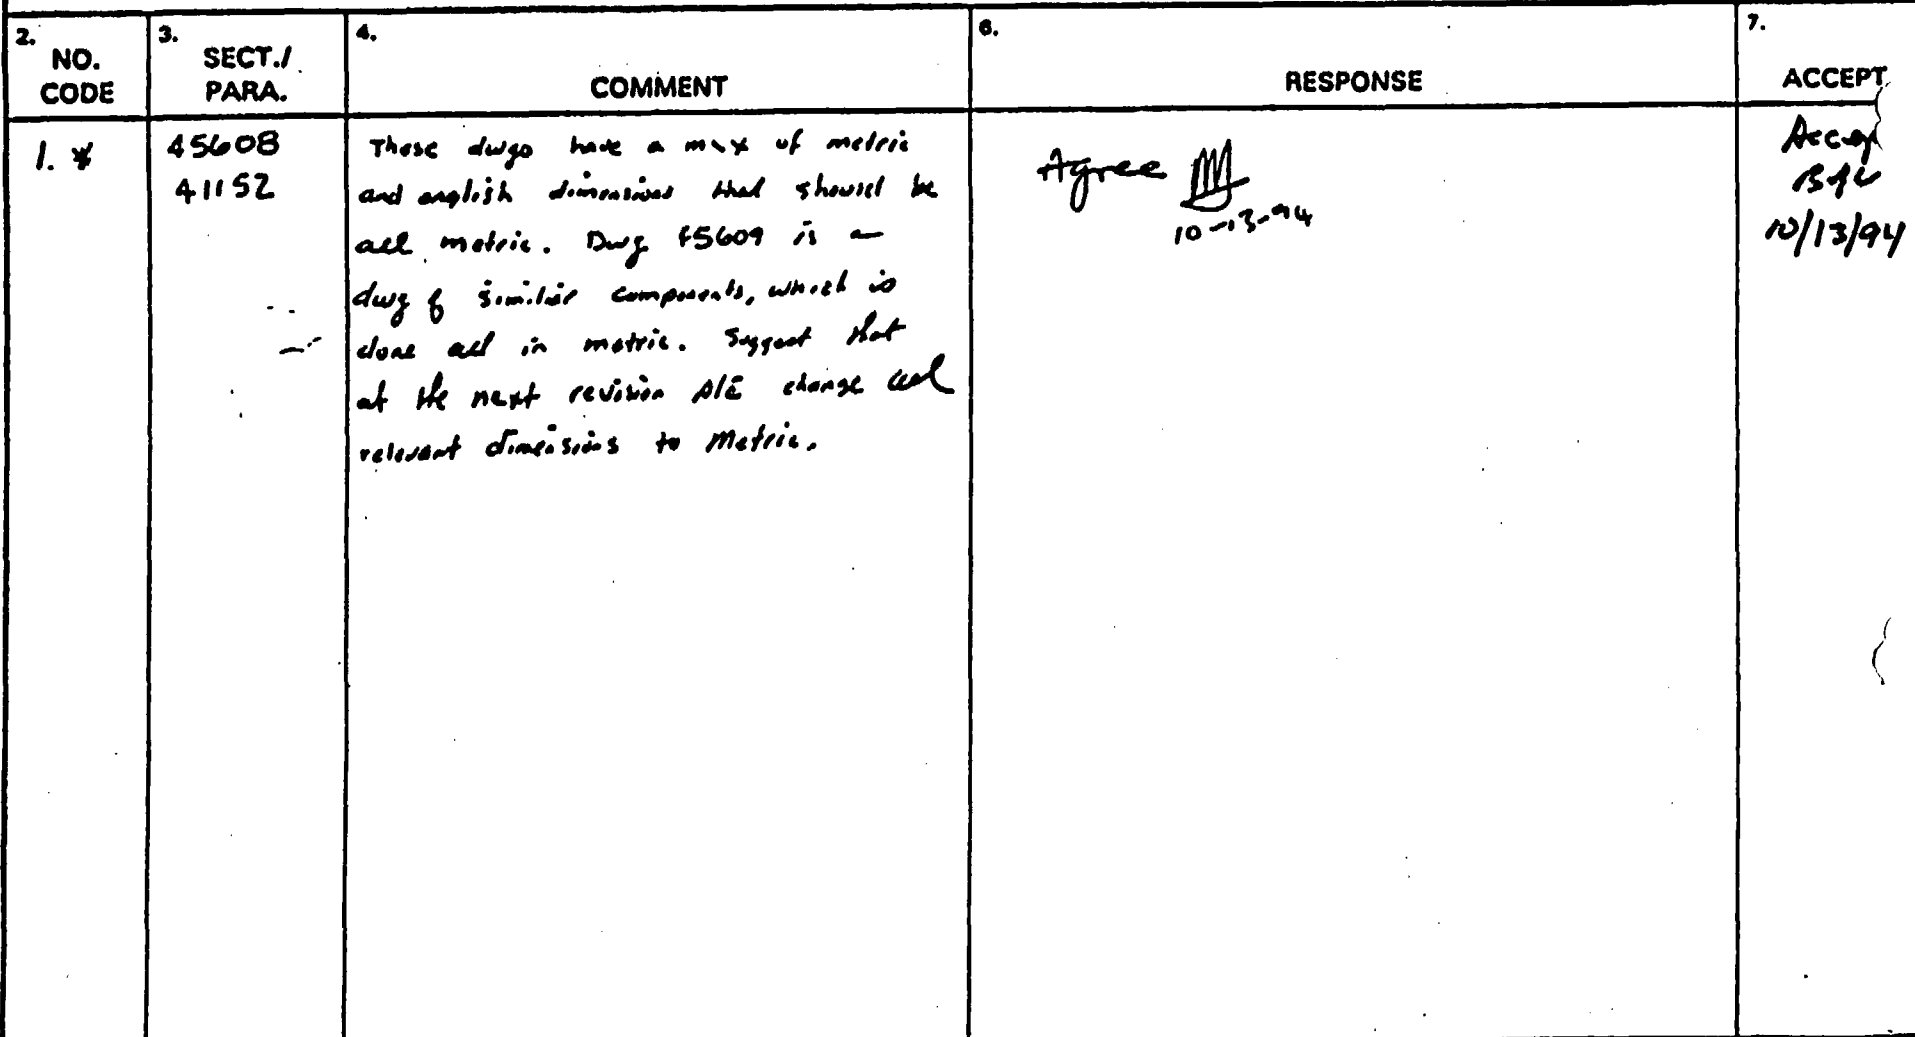 2.
NO.
CODE
3.
SECT./
PARA.
4.
COMMENT
6.
RESPONSE
7.
ACCEPT
1. *
45608
41152
These dwgs have a mix of metric
and english dimensions that should be
all metric. Dwg 45609 is a
dwg of similar components, which is
done all in metric. Suggest that
at the next revision A/E change all
relevant dimensions to Metric.
Agree
10-13-94
Accept
10/13/94